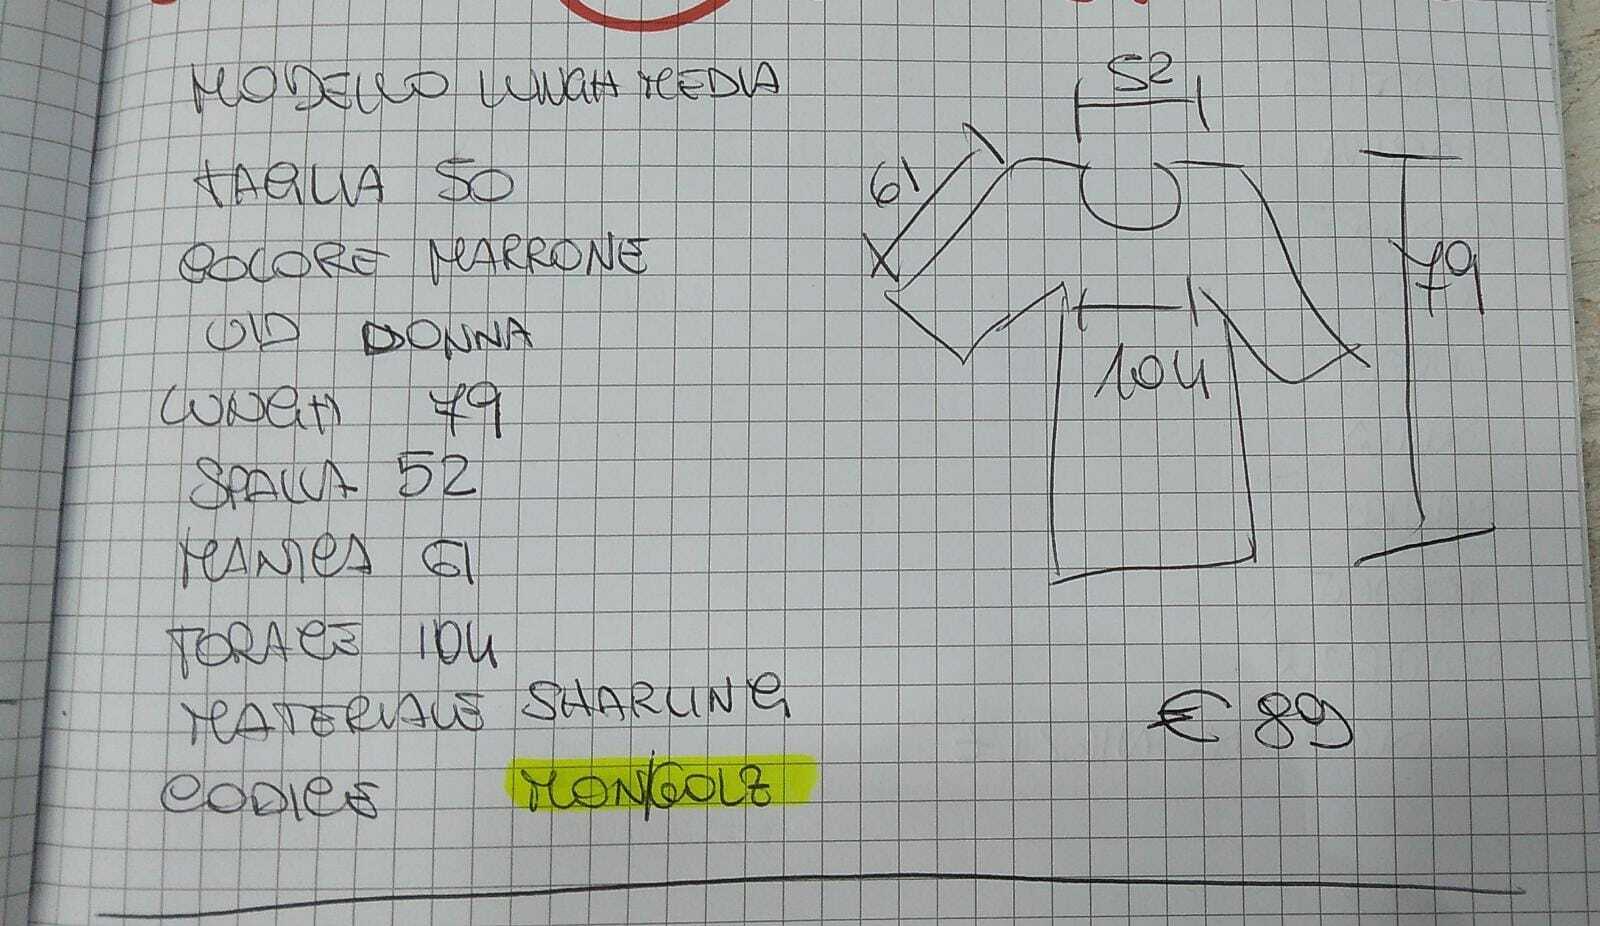 MODELLO LUNGH MEDIA
TAGLIA 50
COLORE MARRONE
DONNA
LUNGH 79
SPALLA 52
MANICA 61
TORACE 104
MATERIALE SHARLING
CODICE MON/GOLZ
52
61
79
104
€ 89